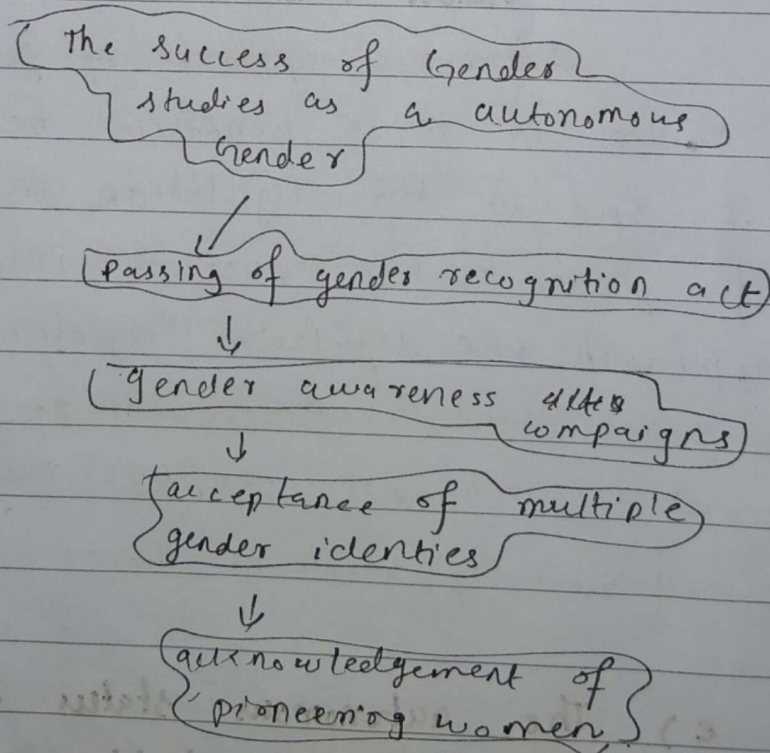 The success of Gender
studies as a autonomous
Gender
passing of gender recognition act
gender awareness
compaigns
acceptance of multiple
gender identies
acknowledgement of
pioneering women